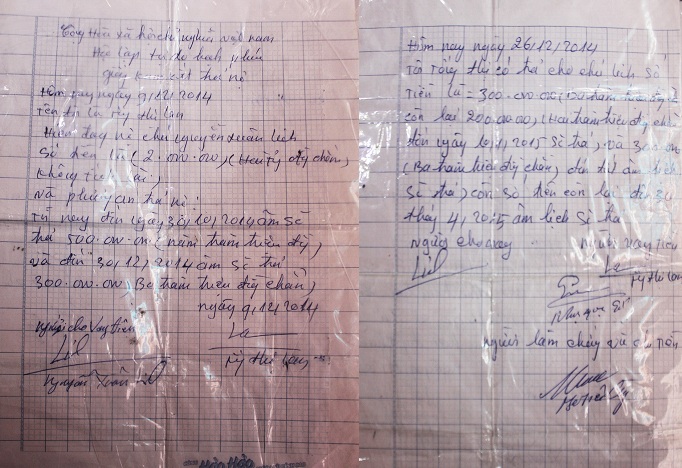 Cộng Hòa xã hội chủ nghĩa việt nam
Độc lập tự do hạnh phúc
giấy cam kết trả nợ
Hôm nay ngày 9/12/2014
Tên tôi là Tý thị Lan
Hiện đang nợ chú nguyễn xuân Lịch
Số tiền là (2.000.000.000), (Hai tỷ đồng chẵn)
không tính lãi,
và phương án trả nợ:
Từ nay đến ngày 30/10/2014 âm sẽ
trả 500.000.000 (năm trăm triệu đồng)
và đến 30/12/2014 âm sẽ trả
300.000.000, Ba trăm triệu đồng chẵn)
ngày 9/12/2014
người cho vay tiền
Lịch
Nguyễn Xuân Lịch
La
Tý thị Lan
Hòa Hòa
Hôm nay ngày 26/12/2014
Tôi Tý thị có trả cho chú Lịch số
tiền là = 300.000.000, (Ba trăm triệu
còn lại 200.000.000, (Hai trăm triệu đồng chẵn
đến ngày 10/1/2015 sẽ trả, và 300.000
(Ba trăm triệu đồng chẵn), đến tết âm lịch
sẽ trả, còn số tiền còn lại đến 30
tháng 4/2015 âm lịch sẽ trả
người cho vay người vay tiền
Lịch La
Tý thị Lan
người làm chứng và